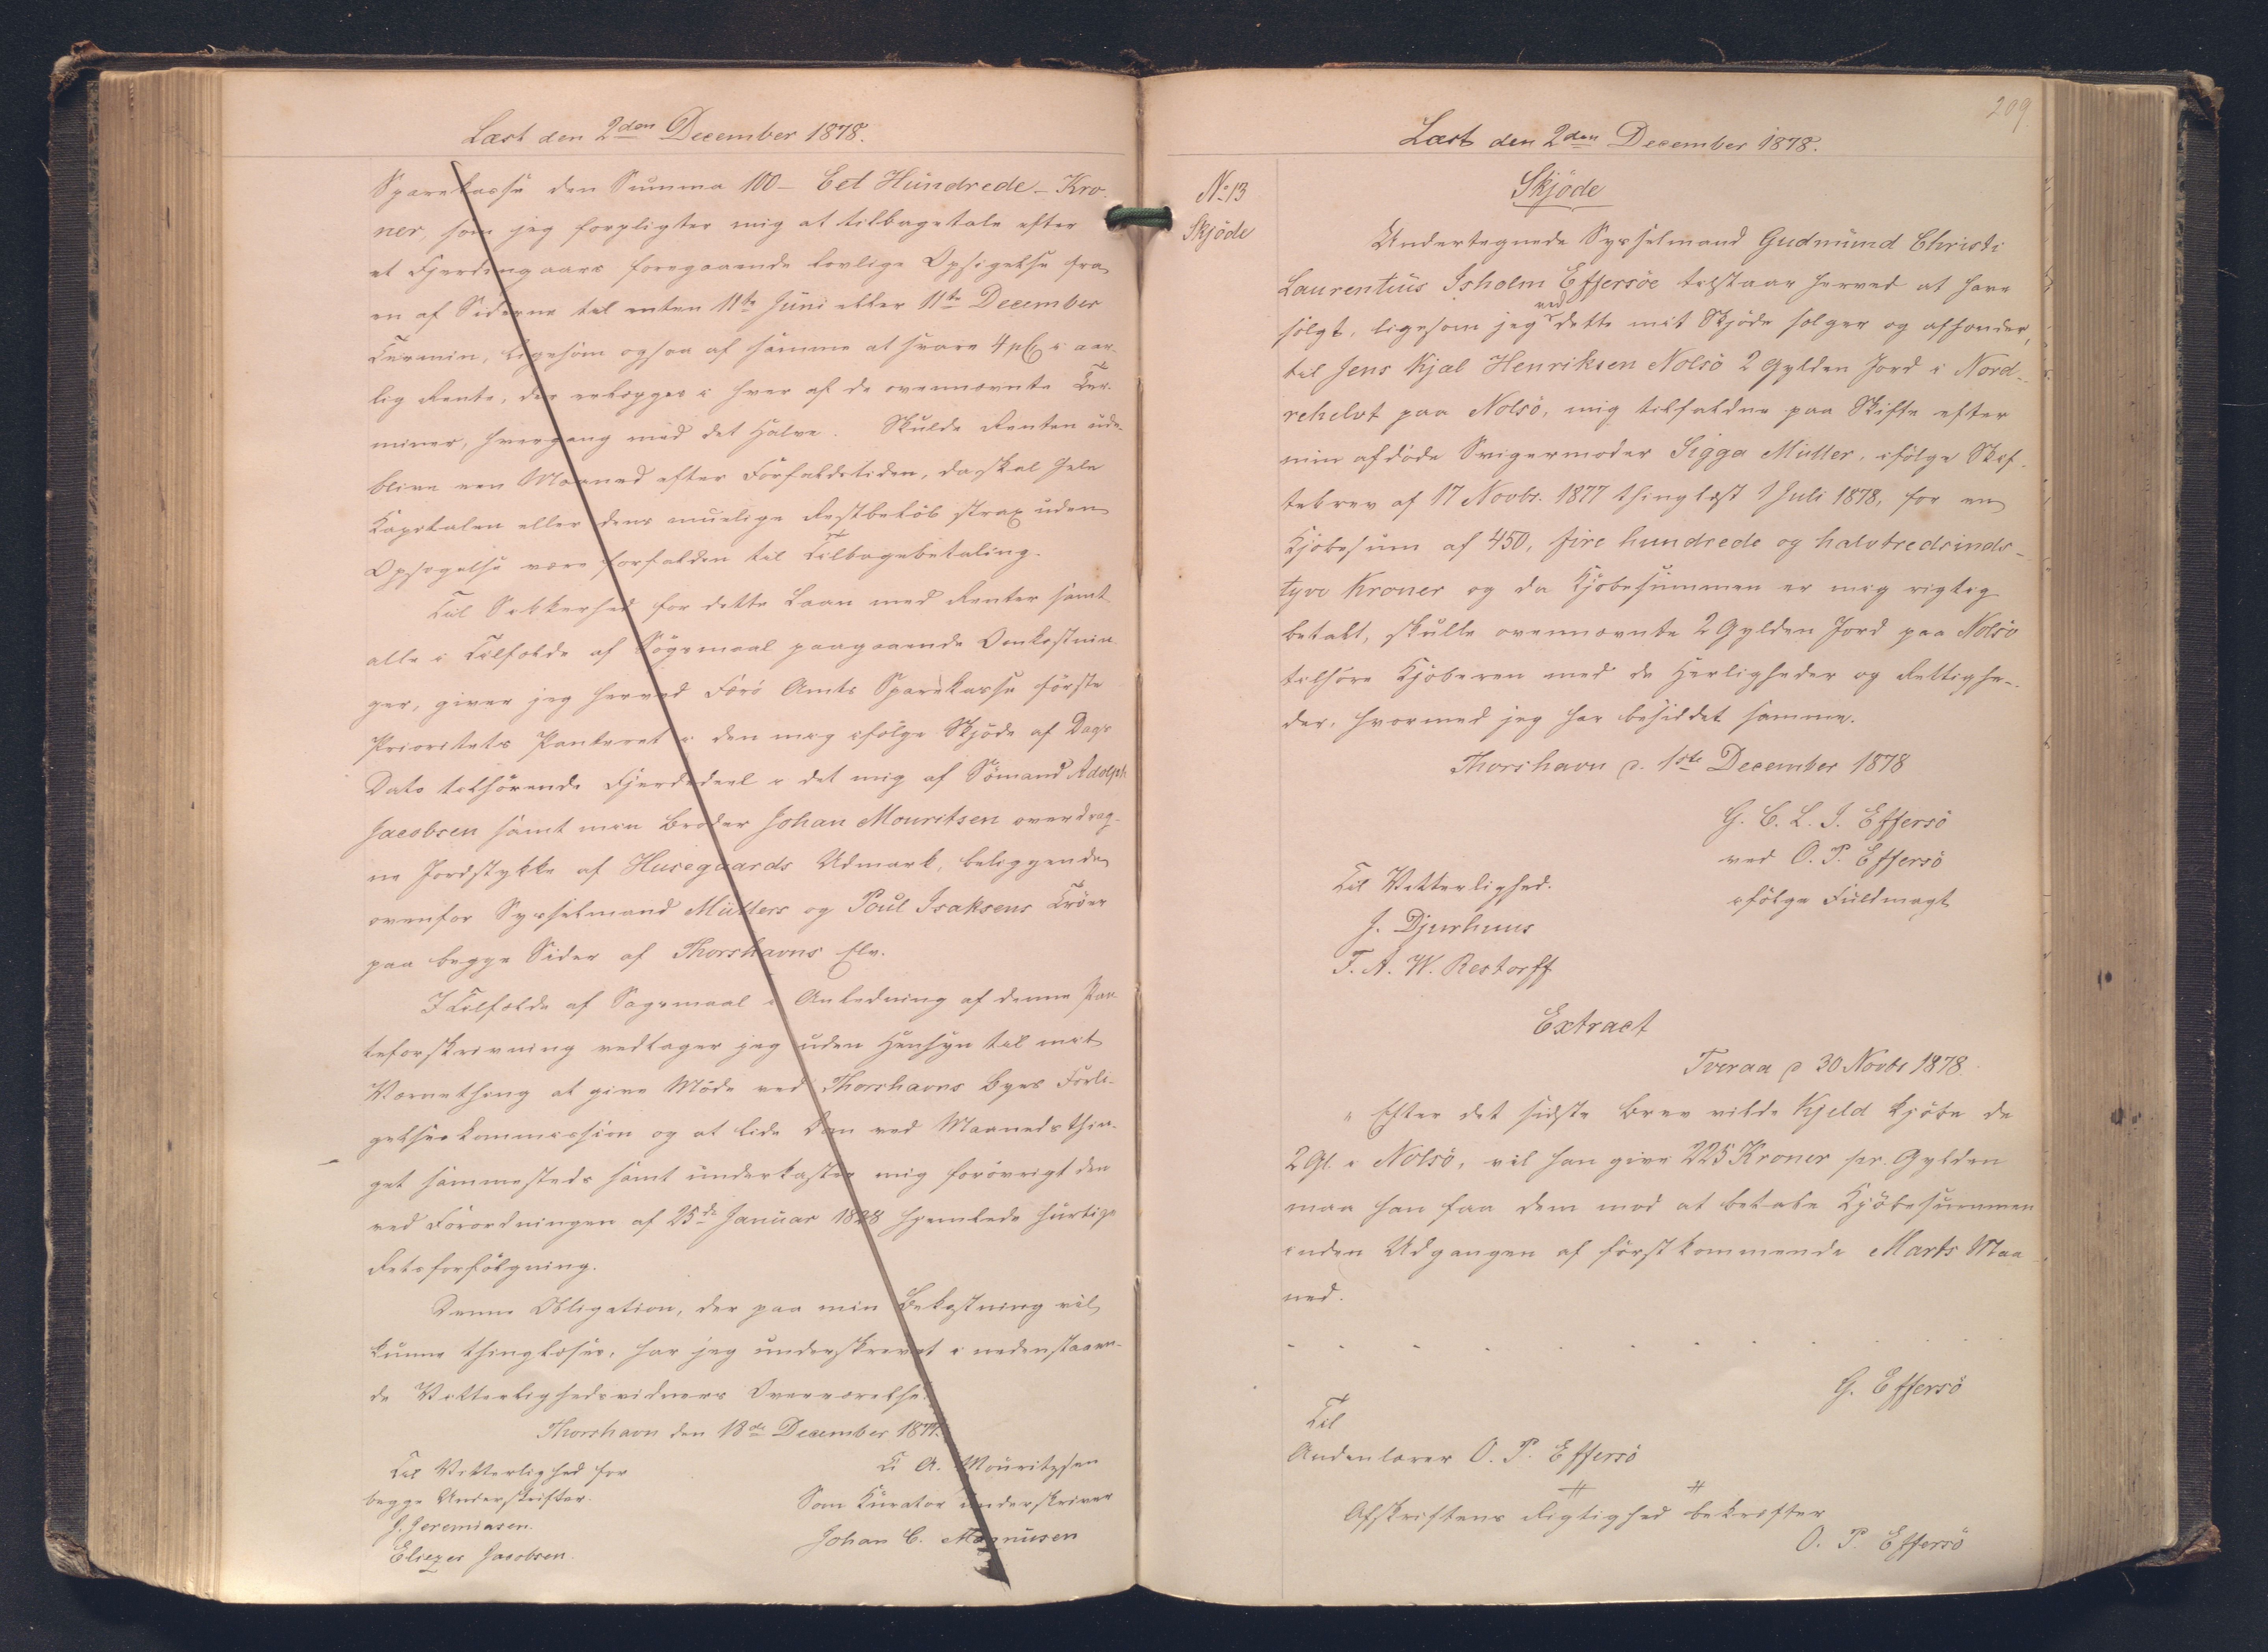 Læst den 2den December 1878.
Sparekasse den Summa 100 - Eet Hundrede - Kro-
ner, som jeg forpligter mig at tilbagetale efter
et Fjerdingaars foregaaende lovlige Opsigelse fra
en af Siderne til enten 11te Juni eller 11te December
Termin, ligesom ogsaa af samme at svare 4 pC i aar-
lig Rente, der erlægges i hver af de ovennævnte Ter-
miner, hvergang med det Halve. Skulde Renten ude-
blive een Maaned efter Forfaldstiden, da skal hele
Kapitalen eller dens muelige Restbeløb strax uden
Opsigelse være forfalden til Tilbagebetaling.
Til Sikkerhed for dette Laan med Renter samt
alle i Tilfælde af Søgemaal paagaaende Omkostnin-
ger, giver jeg herved Færø Amts Sparekasse første
Prioritets Panteret i den mig ifølge Skjøde af Dags
Dato tilhørende Fjerdedeel i det mig af Sømand Adolph
Jacobsen samt min Broder Johan Mouritsen overdrag-
ne Jordstykke af Husegaards Udmark, beliggende
ovenfor Sysselmand Müllers og Poul Isaksens Trøer
paa begge Sider af Thorshavns Elv.
I Tilfælde af Søgemaal i Anledning af denne Pan-
teforskrivning vedtager jeg uden Hensyn til mit
Værnething at give Møde ved Thorshavns Byes Forli-
gelseskommission og at lide Dom ved Maanedsthin-
get sammesteds samt underkaster mig forøvrigt den
ved Forordningen af 25de Januar 1828 hjemlede hurtige
Retsforfølgning.
Denne Obligation, der paa min Bekostning vil
kunne thinglæses, har jeg underskrevet i nedenstaaen-
de Vitterlighedsvidners Overværelse.
Thorshavn den 18de December 1877.
Til Vitterlighed for
begge Underskrifter.
J. Jeremiasen.
Eliezer Jacobsen.
A. Mouritzsen
Som Kurator underskriver
Johan C. Magnusen
209
Læst den 2den December 1878.
No 13
Skjöde
Skjöde
Undertegnede Sysselmand Gudmund Christi
Laurentius Isholm Effersöe tilstaar herved at have
solgt, ligesom jeg ved dette mit Skjöde sælger og afhænder,
til Jens Kjal Henriksen Nolsö 2 Gylden Jord i Nord-
rehelvt paa Nolsö, mig tilfaldne paa Skifte efter
min afdöde Svigermoder Sigga Müller, ifölge Skif-
tebrev af 17 Novbr. 1877 thinglæst 1 Juli 1878, for en
Kjöbesum af 450, fire hundrede og halvtredsinds-
tyve Kroner og da Kjöbesummen er mig rigtig
betalt, skulle ovennævnte 2 Gylden Jord paa Nolsö
tilhöre Kjöberen med de Herligheder og Rettighe-
der, hvormed jeg har besiddet samme.
Thorshavn d. 1ste December 1878
G. C. L. I. Effersö
ved O. P. Effersö
ifölge Fuldmagt
Til Vitterlighed.
J. Djurhuus
T. A. W. Restorff
Extract
Tveraa d 30 Novbr 1878.
" Efter det sidste Brev vilde Kjeld kjöbe de
2 Gl. i Nolsö, vil han give 225 Kroner pr. Gylden
maa han faa dem mod at betale Kjöbesummen
inden Udgangen af förstkommende Marts Maa-
ned.
G. Effersö
Til
Andenlærer O. P. Effersö
Afskriftens Rigtighed bekræfter
O. P. Effersö